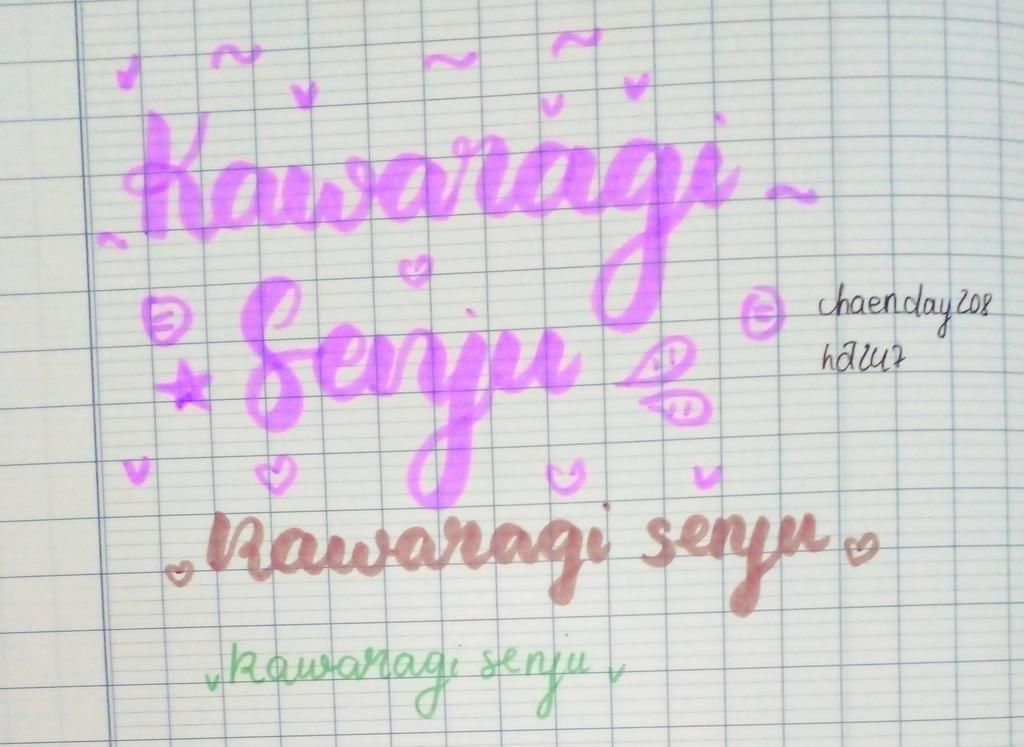 Kawaragi
Senju
chaenday208
kawaragi senju
kawaragi senju